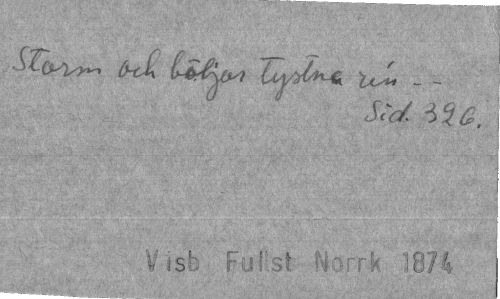 Storm och böljor tystna ren --
Sid. 326.
Visb Fullst Norrk 1874